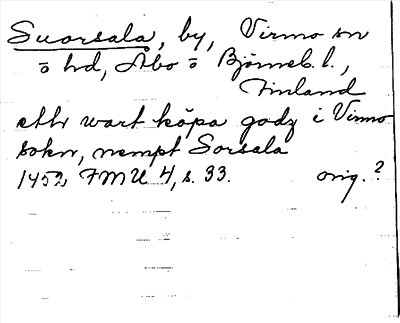 Suorsala, by, Virmo sn
ö hd, Åbo ö Björneb. l.,
Finland
eth wart köpa godz i Virmo
sokn, nempt Sorsala
1452 FMU 4, s. 33. orig.?